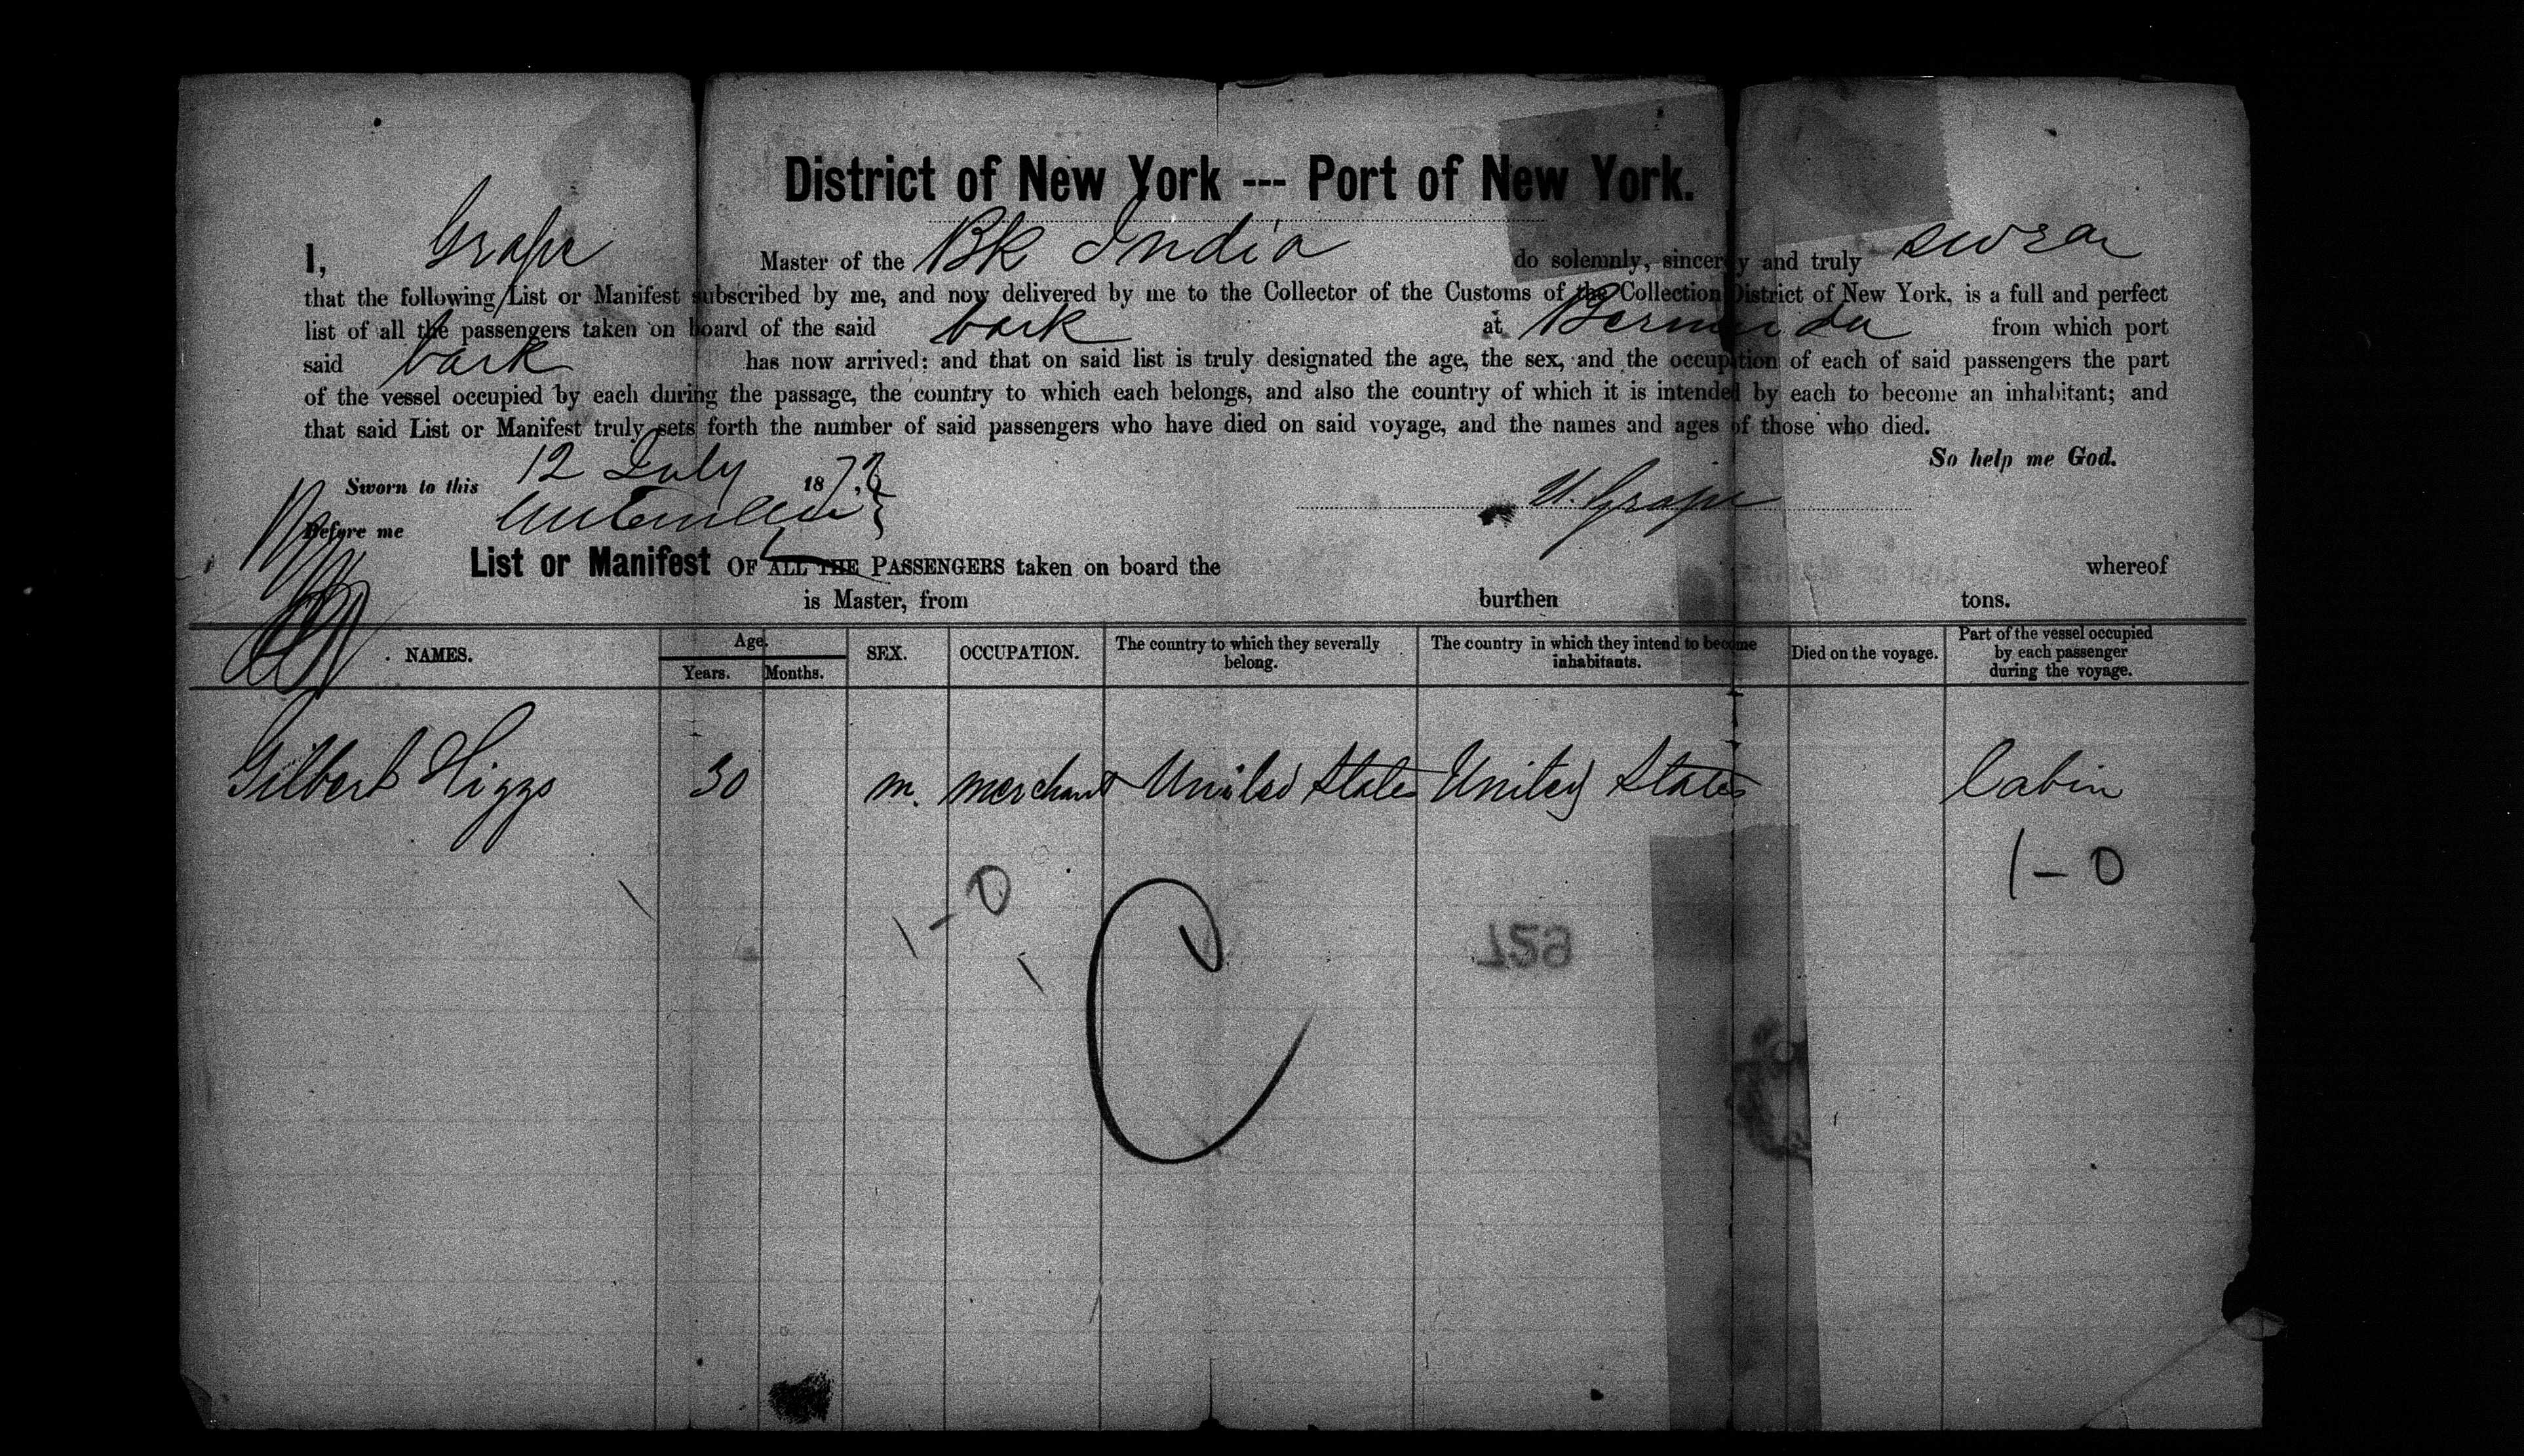 District of New York --- Port of New York.
I, Grape Master of the Bk India do solemnly, sincerely and truly swear
that the following List or Manifest subscribed by me, and now delivered by me to the Collector of the Customs of the Collection District of New York, is a full and perfect
list of all the passengers taken on board of the said bark at Bermuda from which port
said bark has now arrived: and that on said list is truly designated the age, the sex, and the occupation of each of said passengers the part
of the vessel occupied by each during the passage, the country to which each belongs, and also the country of which it is intended by each to become an inhabitant; and
that said List or Manifest truly sets forth the number of said passengers who have died on said voyage, and the names and ages of those who died.
So help me God.
Sworn to this 12 July 187
Before me
Grape
List or Manifest OF ALL THE PASSENGERS taken on board the whereof
is Master, from burthen tons.
NAMES. Age. Years. Months. SEX. OCCUPATION. The country to which they severally belong. The country in which they intend to become inhabitants. Died on the voyage. Part of the vessel occupied by each passenger during the voyage.
Gilbert Higgs 30 m. merchant United States United States Cabin
1-0
1-0
C